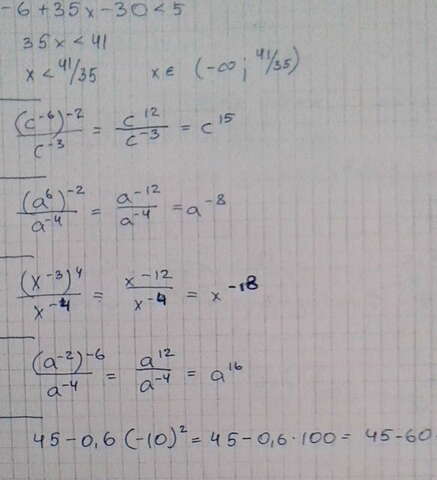 -6+35x-30<5
35x<41
x<41/35 x∈ (-∞; 41/35)
(c^-6)^-2 / c^-3 = c^12 / c^-3 = c^15
(a^6)^-2 / a^-4 = a^-12 / a^-4 = a^-8
(x^-3)^4 / x^-4 = x^-12 / x^-4 = x^-18
(a^-2)^-6 / a^-4 = a^12 / a^-4 = a^16
45-0,6(-10)^2=45-0,6·100=45-60